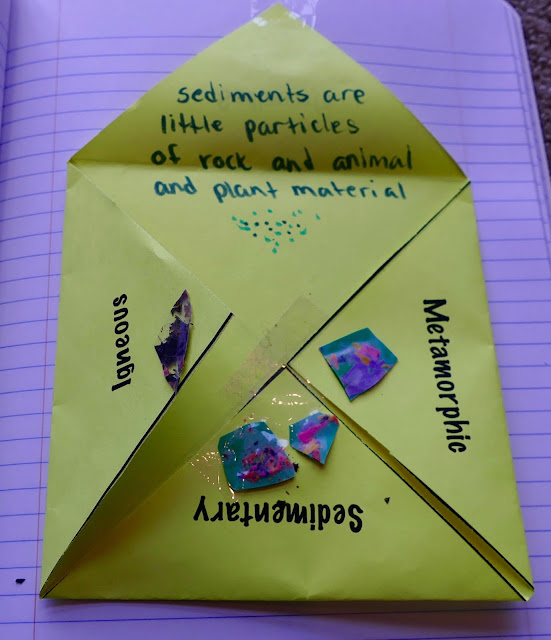 sediments are
little particles
of rock and animal
and plant material
Igneous
Metamorphic
Sedimentary